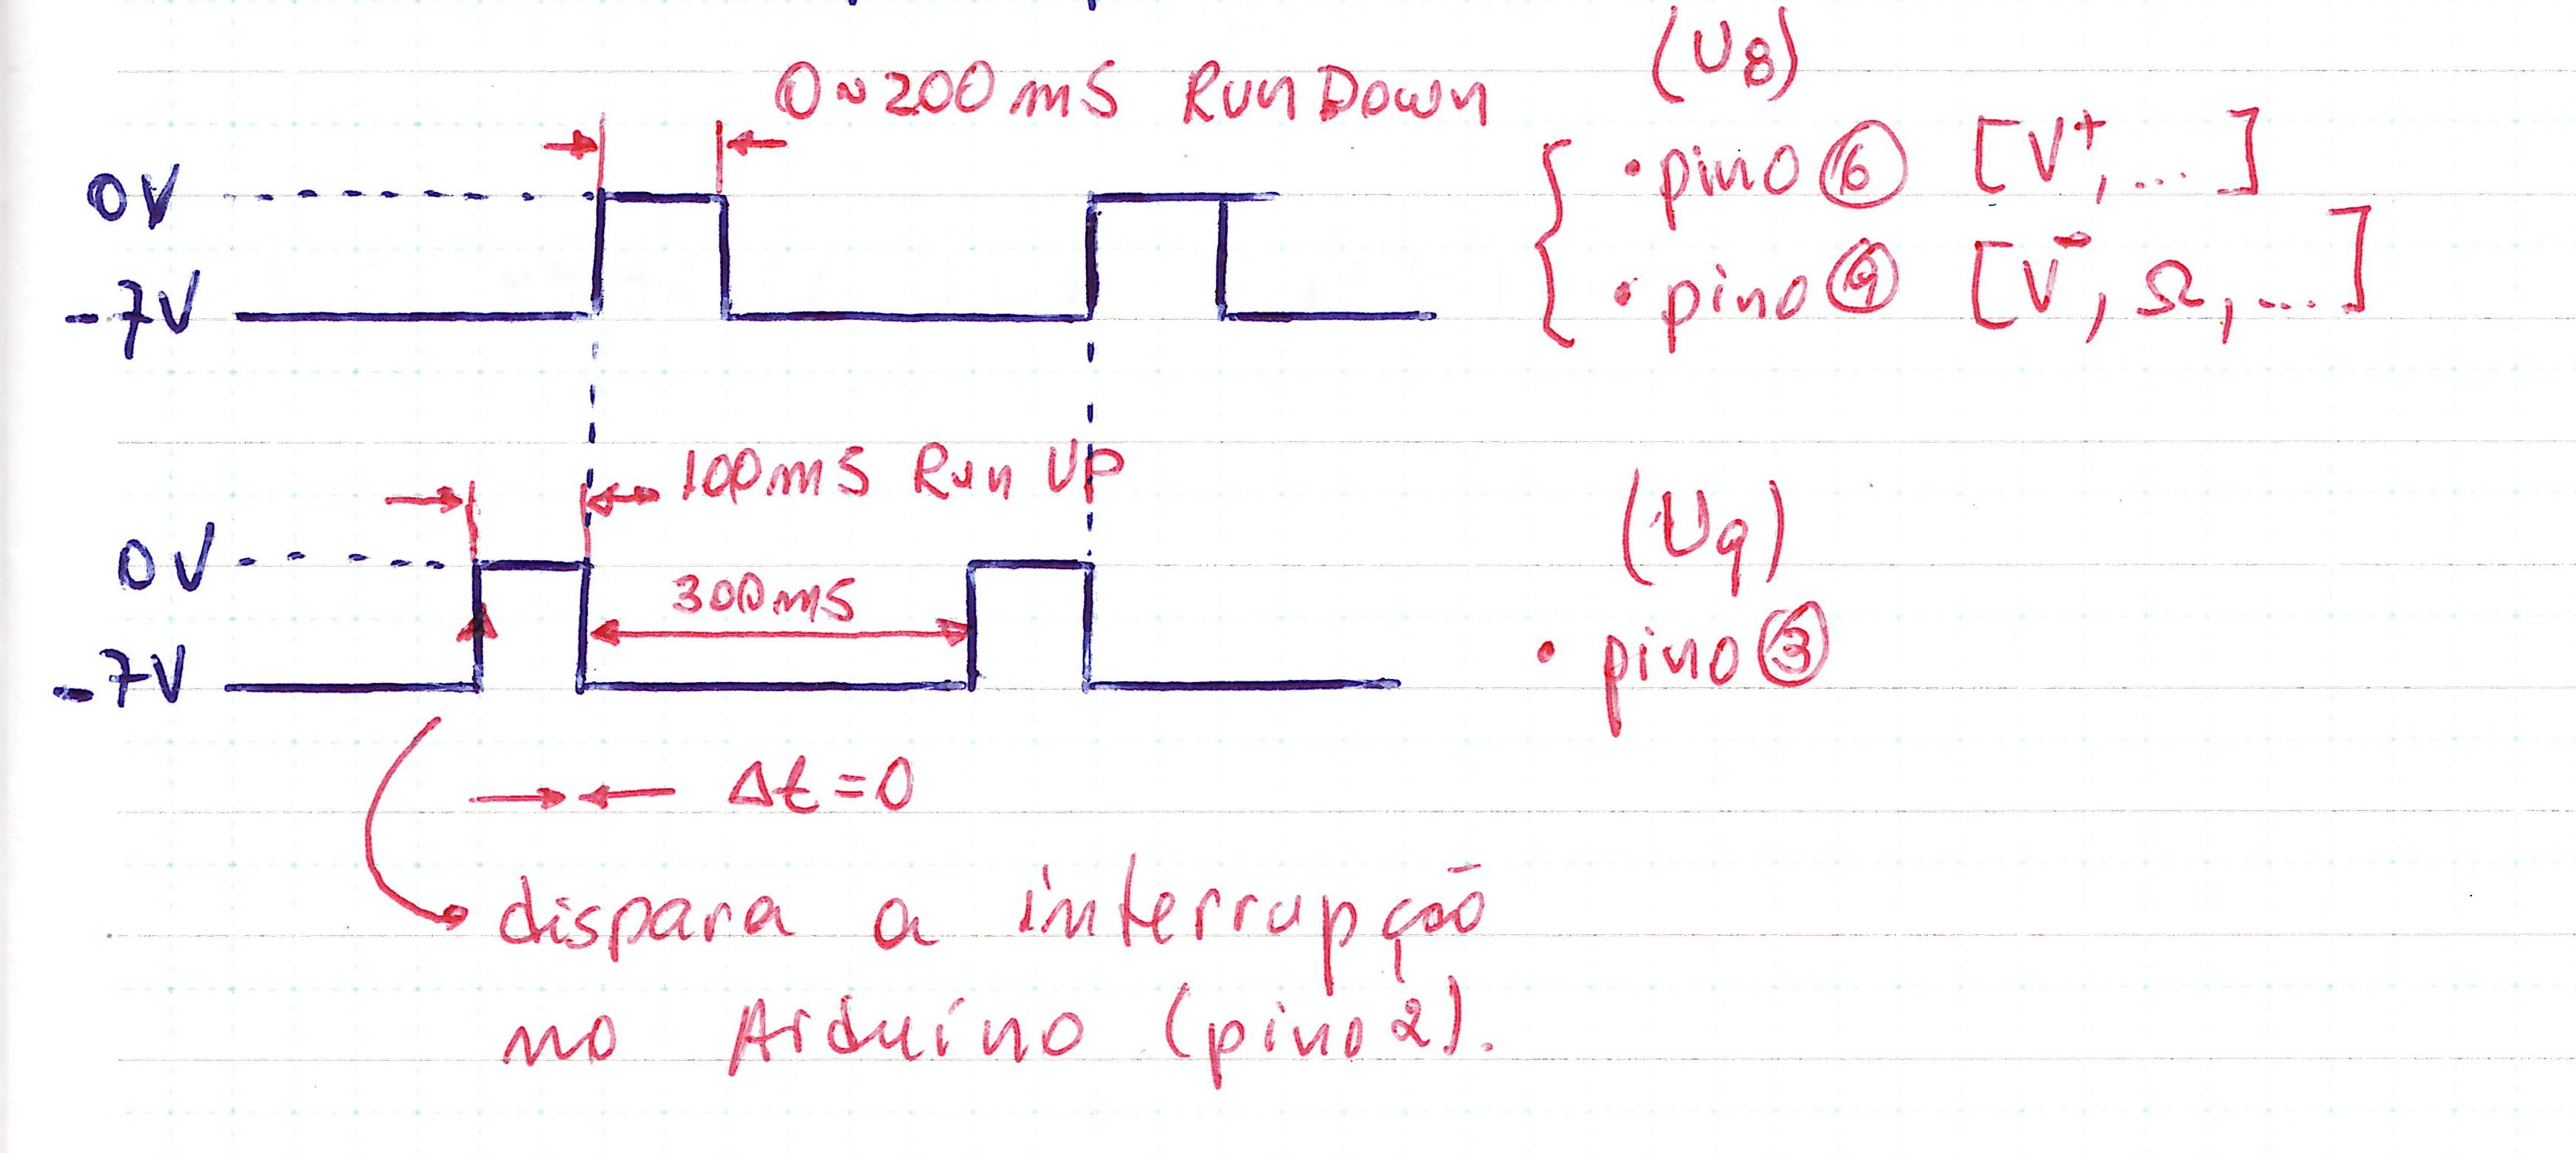 (U8)
0~200mS Run Down
• pino ⑯ [V⁺, ...]
0V
• pino ⑨ [V⁻, Ω, ...]
-7V
100mS Run UP
(U9)
0V
300mS
• pino ③
-7V
Δt = 0
dispara a interrupção
no Arduíno (pino 2).